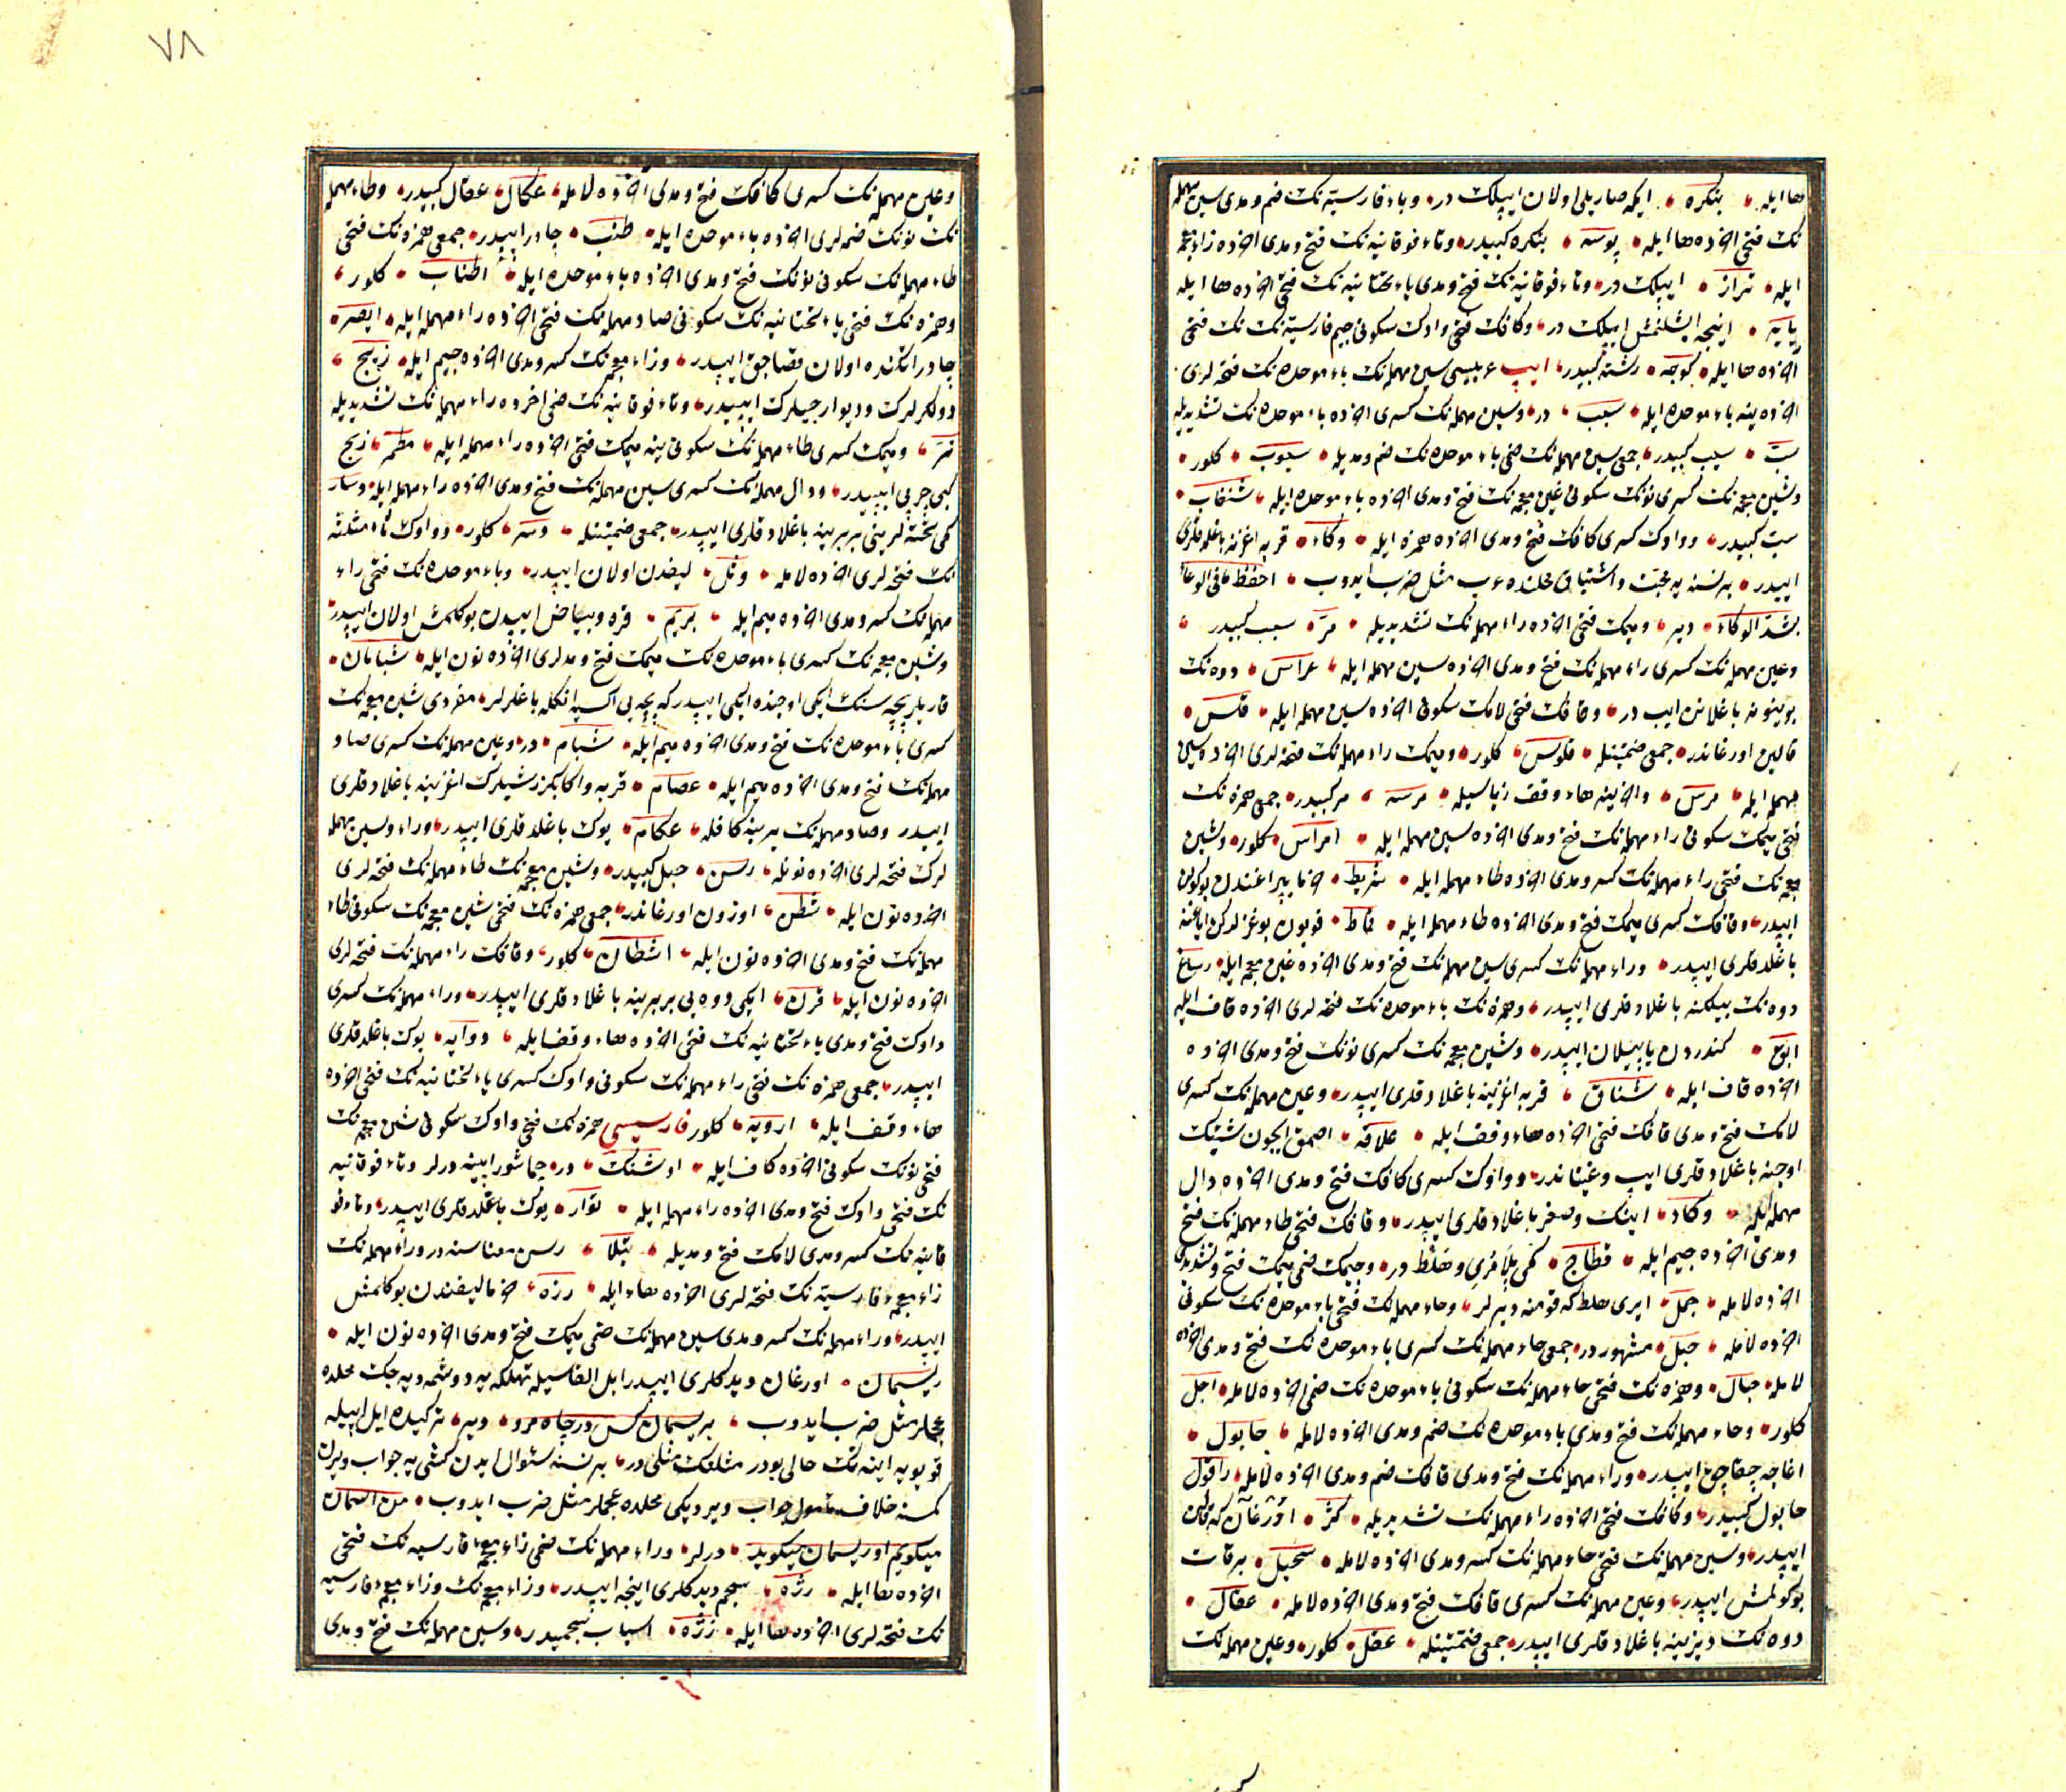 ها ايله بنكره ايكه صاريلی اولان ايپلك در وباء فارسيه نك ضم ومدی سين مهمله
نك فتحی اخرده ها ايله پوسه بنكره كبيدر وتاء فوقانيه نك فتح ومدی اخرده زاء معجمه
ايله تراز ايپلك در وتاء فوقانيه نك فتح ومدی ياء تحتانيه نك فتحی اخرده ها ايله
تايه اينجه اشلنمش ايپلك در وكافك فتحی واوك سكونی جيم فارسيه نك فتحی
اخرده ها ايله كوجه رشته كبيدر ايپ عربيسی سين مهمله نك باء موحده نك فتحه لری
اخرده ينه باء موحده ايله سبب در وسين مهمله نك كسری اخرده باء موحده نك تشديديله
سبّ سبب كبيدر جمعی سين مهمله نك ضمی باء موحده نك ضم ومديله سبوب كلور
وشين معجمه نك كسری نونك سكونی غين معجمه نك فتح ومدی اخرده باء موحده ايله شنغاب
سبّ كبيدر وواوك كسری كافك فتح ومدی اخرده همزه ايله وكاء قربه اغزينه باغلدقلری
ايپدر بر نسنه يه محبت واشتياق محلنده عرب مثل ضرب ايدوب احفظ ما فی الوعاء
بشدّ الوكاء دير وميمك فتحی اخرده راء مهمله نك تشديديله مرّ سبب كبيدر
وعين مهمله نك كسری راء مهمله نك فتح ومدی اخرده سين مهمله ايله عراس دوه نك
بوينونه باغلانن ايپ در وقافك فتحی لامك سكونی اخرده سين مهمله ايله قلس
قالين اورغاندر جمعی ضمتينله قلوس كلور وميمك راء مهمله نك فتحه لری اخرده سين
مهمله ايله مرس واخرينه هاء وقف زياسيله مرسه مر كبيدر جمعی همزه نك
فتحی ميمك سكونی راء مهمله نك فتح ومدی اخرده سين مهمله ايله امراس كلور وشين
معجمه نك فتحی راء مهمله نك كسر ومدی اخرده طاء مهمله ايله شريط خرما يپراغندن بوكولن
ايپدر وقافك كسری ميمك فتح ومدی اخرده طاء مهمله ايله قماط قويون بوغزلركن اياغنه
باغلدقلری ايپدر وراء مهمله نك كسری سين مهمله نك فتح ومدی اخرده غين معجمه ايله رساغ
دوه نك بيلكنه باغلادقلری ايپدر وهمزه نك باء موحده نك فتحه لری اخرده قاف ايله
ابق كندردن ياپيلان ايپدر وشين معجمه نك كسری نونك فتح ومدی اخرده
اخرده قاف ايله شناق قربه اغزينه باغلادقلری ايپدر وعين مهمله نك كسری
لامك فتح ومدی قافك فتحی اخرده هاء وقف ايله علاقه اصمق ايچون شيئك
اوجنه باغلادقلری ايپ وغيتاندر وواوك كسری كافك فتح ومدی اخرده دال
مهمله ايله وكاد اينك وصغر باغلادقلری ايپدر وقافك فتحی طاء مهمله نك فتح
ومدی اخرده جيم ايله قطاج كمی پلامری وخلط در وجيمك ضمی ميمك فتح وتشديدی
اخرده لامله جمل ايری خلط كه قومنه ديرلر وحاء مهمله نك فتحی باء موحده نك سكونی
اخرده لامله حبل مشهور در جمعی حاء مهمله نك كسری باء موحده نك فتح ومدی اخرده
لامله حبال وهمزه نك فتحی حاء مهمله نك سكونی باء موحده نك ضمی اخرده لامله احبل
كلور وحاء مهمله نك فتح ومدی باء موحده نك ضم ومدی اخرده لامله حابول
اغاجه چقاجق ايپدر وراء مهمله نك فتح ومدی قافك ضم ومدی اخرده لامله راقول
حابول كبيدر وكافك فتحی اخرده راء مهمله نك تشديديله كرّ اورغان كه قالين
ايپدر وسين مهمله نك فتحی حاء مهمله نك كسر ومدی اخرده لامله سحيل بر قات
بوكولمش ايپدر وعين مهمله نك كسری قافك فتح ومدی اخرده لامله عقال
دوه نك ديزينه باغلادقلری ايپدر جمعی ضمتينله عقل كلور وعين مهمله نك
٧٨
وعين مهمله نك كسری كافك فتح ومدی اخرده لامله عكال عقال كبيدر وطاء مهمله
نك نونك ضمه لری اخرده باء موحده ايله طنب چادر ايپيدر جمعی همزه نك فتحی
طاء مهمله نك سكونی نونك فتح ومدی اخرده باء موحده ايله اطناب كلور
وهمزه نك فتحی ياء تحتانيه نك سكونی صاد مهمله نك فتحی اخرده راء مهمله ايله ايصر
چادر اتكنده اولان قصاجق ايپدر وزاء معجمه نك كسر ومدی اخرده جيم ايله زيج
دولكرلرك وديوارجيلرك ايپيدر وتاء فوقانيه نك ضمی اخرده راء مهمله نك تشديديله
ترّ وميمك كسری طاء مهمله نك سكونی ينه ميمك فتحی اخرده راء مهمله ايله مطمر زيج
كبی چرپی ايپيدر ودال مهمله نك كسری سين مهمله نك فتح ومدی اخرده راء مهمله ايله دسار
كمی تخته لرينی بر برينه باغلادقلری ايپدر جمعی ضمتينله دسر كلور وواوك ثاء مثلثه
نك فتحه لری اخرده لامله وثل ليفدن اولان ايپدر وباء موحده نك فتحی راء
مهمله نك كسر ومدی اخرده ميم ايله بريم قره وبياض ايپدن بوكلمش اولان ايپدر
وشين معجمه نك كسری باء موحده نك ميمك فتح ومدلری اخرده نون ايله شبامان
قاريلر پچه سنك ايكی اوجنده ايكی ايپدر كه پچه يی اكسه يه انكله باغلرلر مفردی شين معجمه نك
كسری باء موحده نك فتح ومدی اخرده ميم ايله شبام در وعين مهمله نك كسری صاد
مهمله نك فتح ومدی اخرده ميم ايله عصام قربه واكا بكزر شيلرك اغزينه باغلادقلری
ايپدر وصاد مهمله نك يرينه كافله عكام يوك باغلدقلری ايپدر وراء وسين مهمله
لرك فتحه لری اخرده نونله رسن حبل كبيدر وشين معجمه نك طاء مهمله نك فتحه لری
اخرده نون ايله شطن اوزون اورغاندر جمعی همزه نك فتحی شين معجمه نك سكونی طاء
مهمله نك فتح ومدی اخرده نون ايله اشطان كلور وقافك راء مهمله نك فتحه لری
اخرده نون ايله قرن ايكی دوه يی بر برينه باغلادقلری ايپدر وراء مهمله نك كسری
واوك فتح ومدی ياء تحتانيه نك فتحی اخرده هاء وقف ايله روايه يوك باغلدقلری
ايپدر جمعی همزه نك فتحی راء مهمله نك سكونی واوك كسری ياء تحتانيه نك فتحی اخرده
هاء وقف ايله ارويه كلور فارسيسی همزه نك فتحی واوك سكونی شين معجمه نك
فتحی نونك سكونی اخرده كاف ايله اوشنك در چماشور ايپينه ديرلر وتاء فوقانيه
نك فتحی واوك فتح ومدی اخرده راء مهمله ايله توار يوك باغلدقلری ايپدر وتاء فو
قانيه نك كسر ومدی لامك فتح ومديله تيلا رسن معناسنه در وراء مهمله نك
زاء معجمه فارسيه نك فتحه لری اخرده هاء ايله رزه خرما ليفندن بوكلمش
ايپدر وراء مهمله نك كسر ومدی سين مهمله نك ضمی ميمك فتح ومدی اخرده نون ايله
ريسمان اورغان ديدكلری ايپدر ايل القاسيله تهلكه يه دوشمه ديه جك محلده
عجملر مثل ضرب ايدوب بريسمان كس در چاه مرو دير تركيده ايل ايپيله
قويويه اينه نك حالی بودر مثلنك مثلی در بر نسنه سئوال ايدن كمسه يه جواب ويرن
كمسنه خلاف سئول جواب ويرديكی محلده عجملر مثل ضرب ايدوب من اسمان
ميكويم او ريسمان ميكويد ديرلر وراء مهمله نك ضمی زاء معجمه فارسيه نك فتحی
اخرده ها ايله رژه سجم ديدكلری اينجه ايپدر وزاء معجمه نك وزاء معجمه فارسيه
نك فتحه لری اخرده ها ايله زژه اسباب سجميدر وسين مهمله نك فتح ومدی